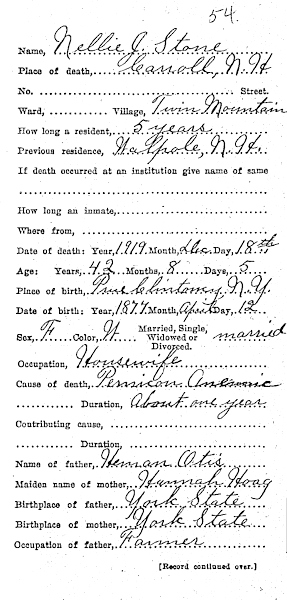 54.
Name, Nellie J. Stone
Place of death, Carroll, N. H
No. Street.
Ward, Village, Twin Mountain
How long a resident, 5 years
Previous residence, Walpole, N. H.
If death occurred at an institution give name of same
How long an inmate,
Where from,
Date of death: Year, 1919 Month, Dec. Day, 18th
Age: Years, 42 Months, 8 Days, 5
Place of birth, N. Y.
Date of birth: Year, 1877 Month, April Day, 13
Sex, F Color, W Married, Single, Widowed or Divorced. married
Occupation, Housewife
Cause of death,
Duration, About one year
Contributing cause,
Duration,
Name of father, Heman Otis
Maiden name of mother, Hannah Hoag
Birthplace of father, York State
Birthplace of mother, York State
Occupation of father, Farmer
[Record continued over.]